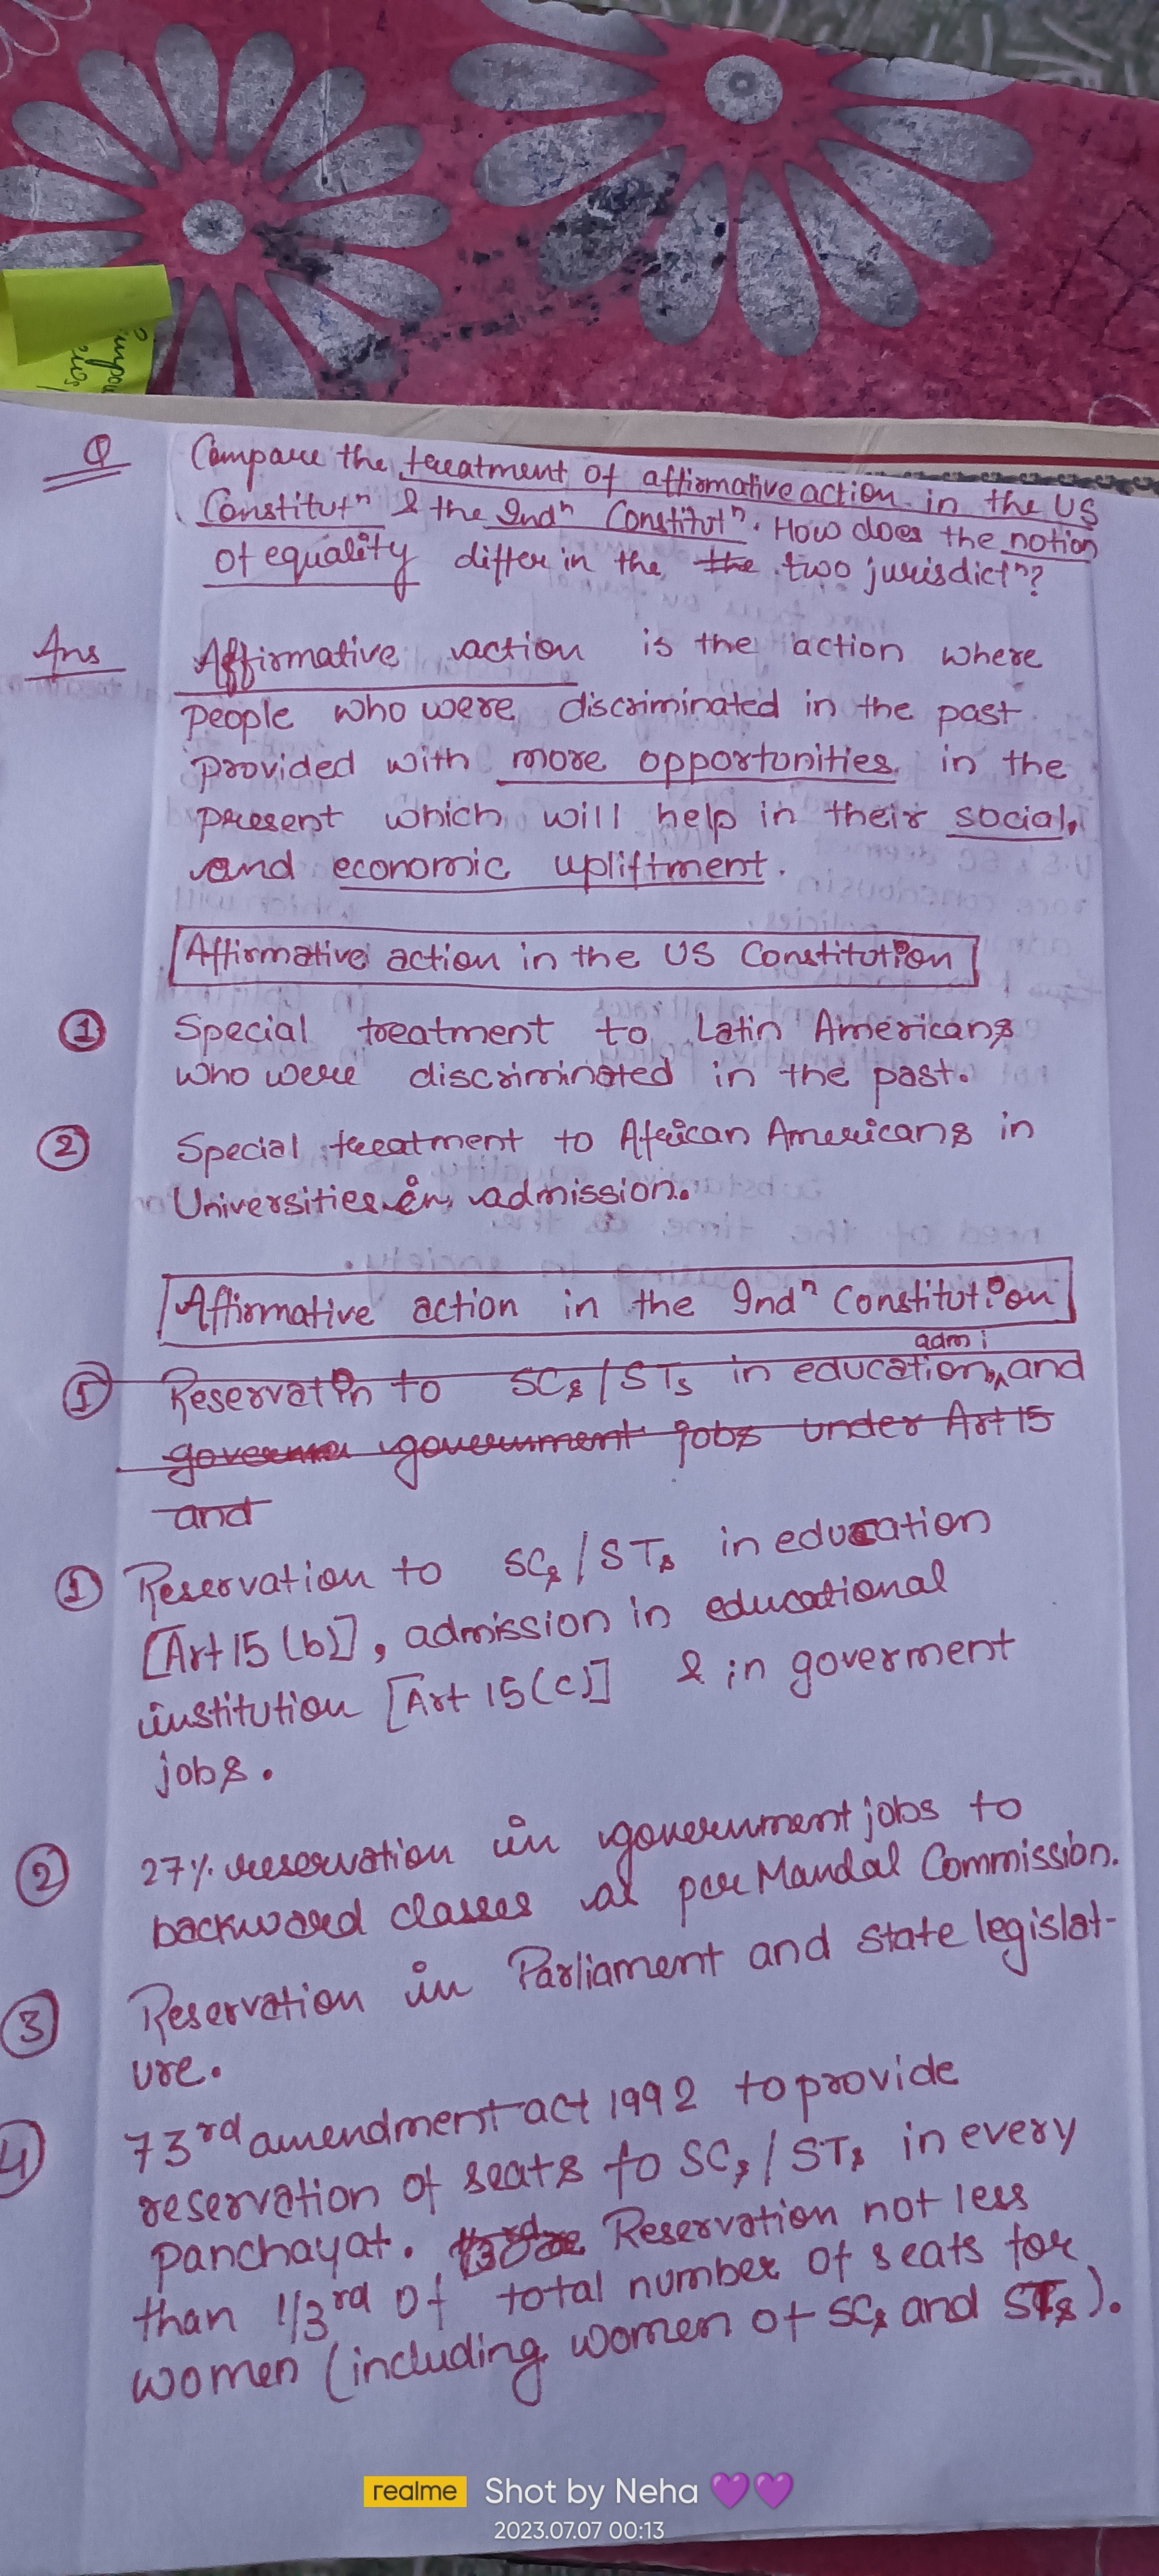 Q Compare the treatment of affirmative action in the US
Constitutⁿ & the Indⁿ Constitutⁿ. How does the notion
of equality differ in the the two jurisdictⁿ?
Ans Affirmative action is the action where
people who were discriminated in the past
provided with more opportonities in the
present which will help in their social,
and economic upliftment.
Affirmative action in the US Constitution
① Special treatment to Latin Americans
who were discriminated in the past.
② Special treatment to African Americans in
Universities in admission.
Affirmative action in the Indⁿ Constitution
admi
① Reservation to SCs/STs in education, and
government jobs under Art 15
and
① Reservation to SCs/STs in education
[Art 15 (b)], admission in educational
institution [Art 15(c)] & in goverment
jobs.
② 27% reservation in government jobs to
backward classes as per Mandal Commission.
③ Reservation in Parliament and state legislat-
ure.
④ 73rd amendment act 1992 to provide
reservation of seats to SCs/STs in every
panchayat. Reservation not less
than 1/3rd of total number of seats for
women (including women of SCs and STs).
realme Shot by Neha 💜💜
2023.07.07 00:13